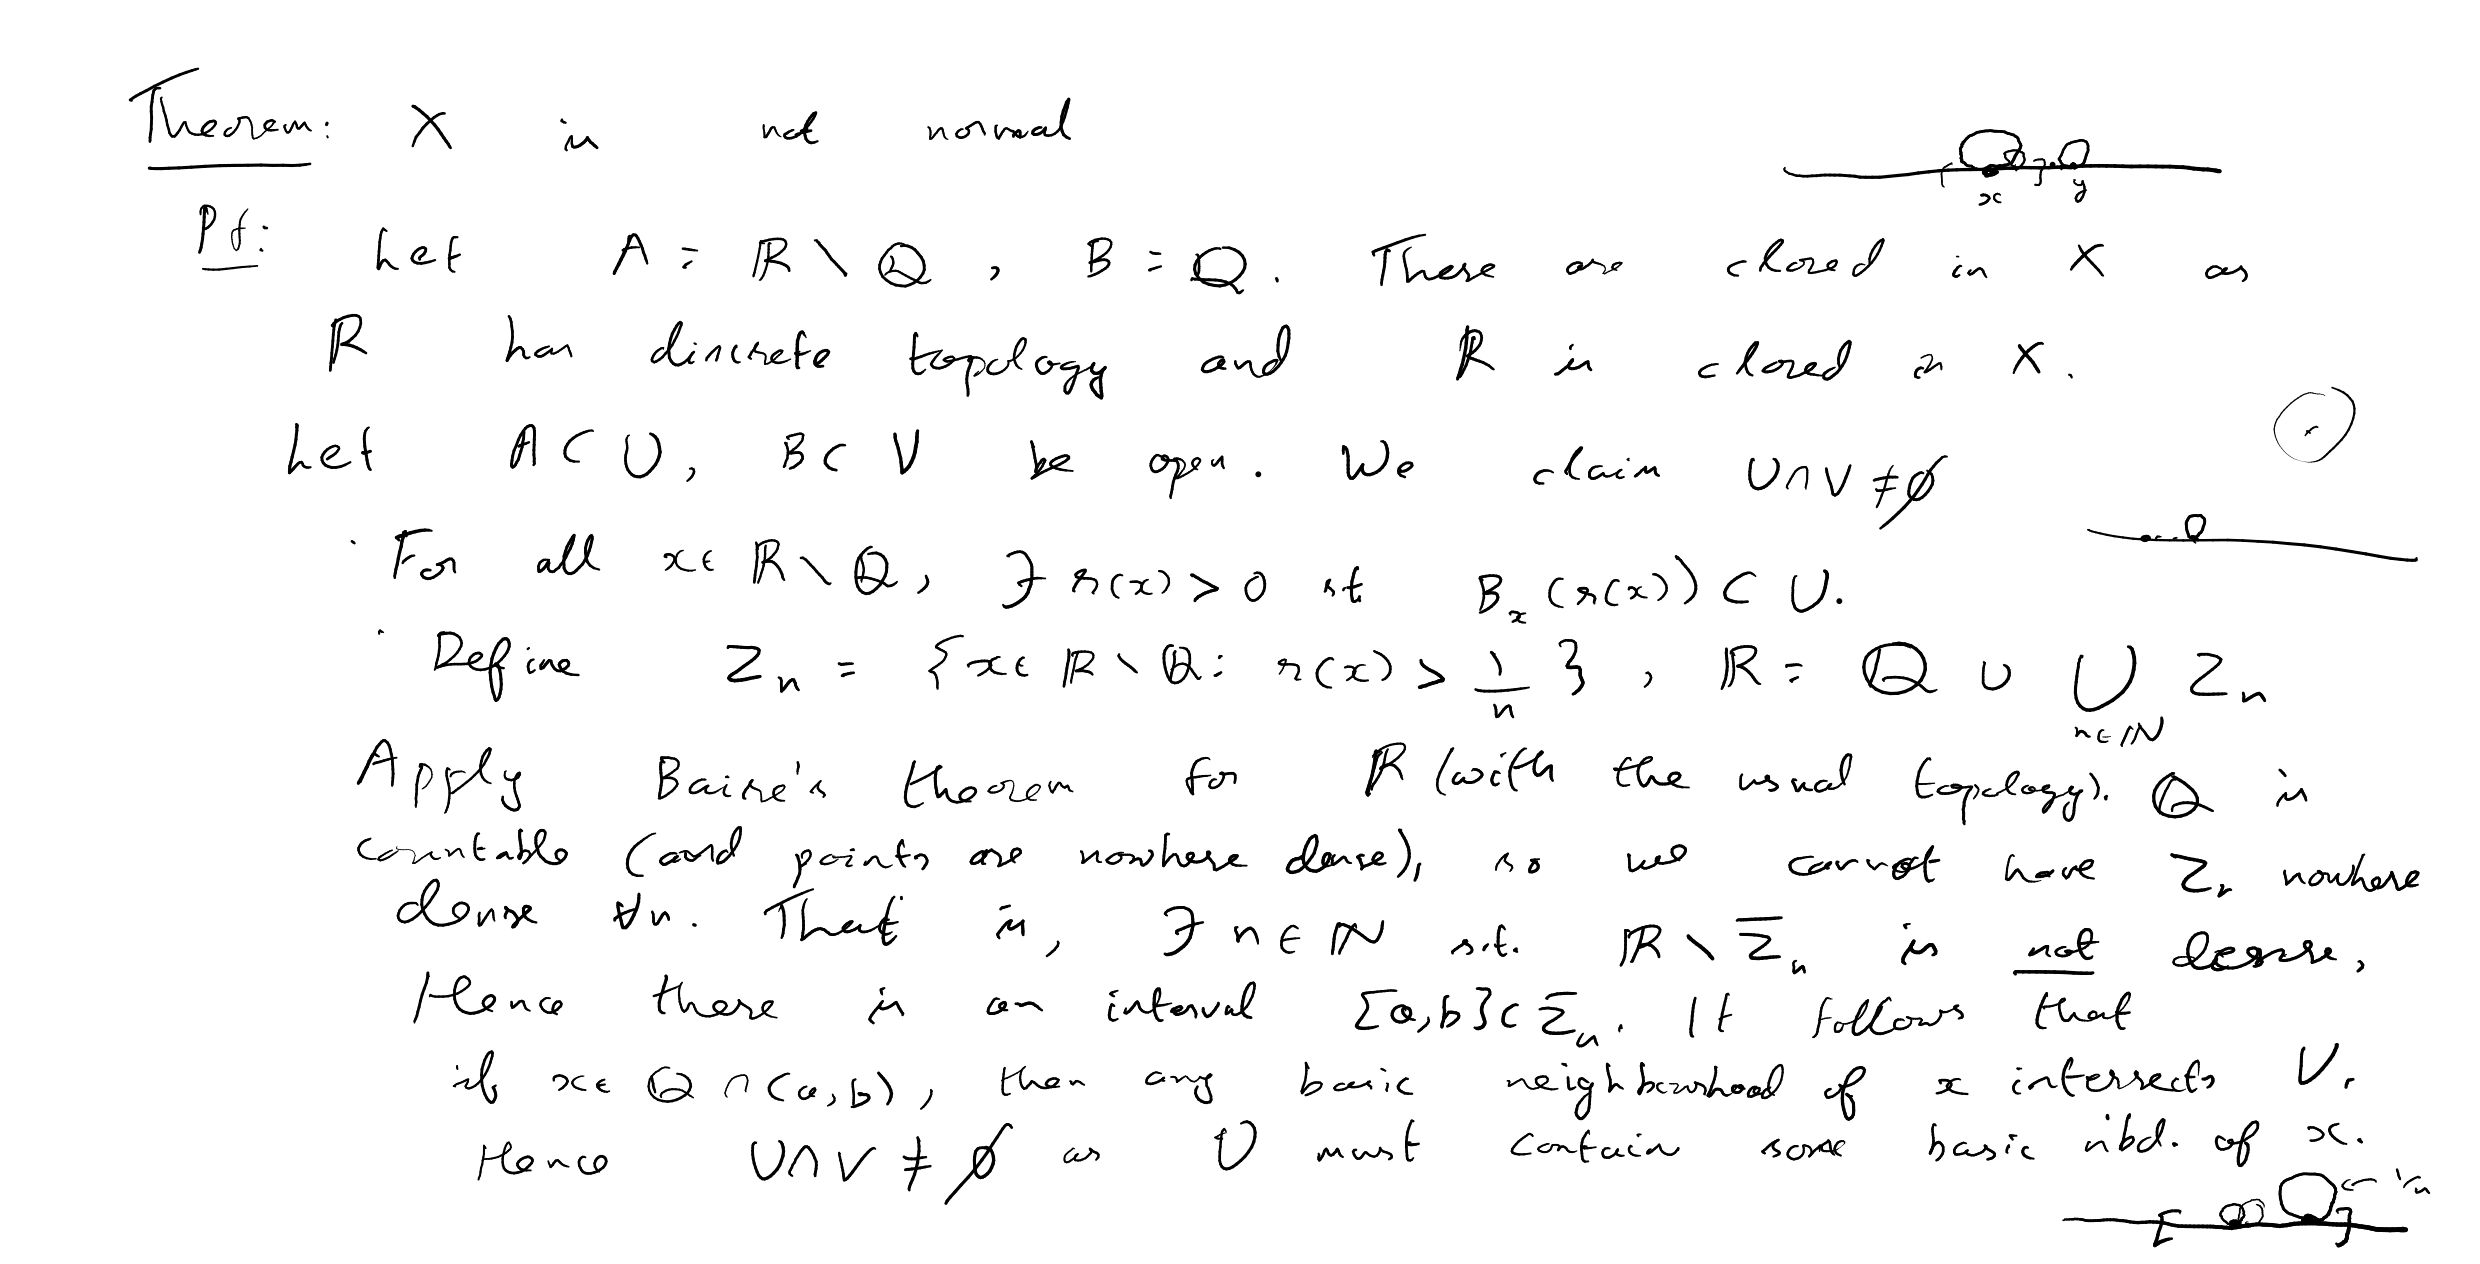 Theorem: X is not normal
x y
Pf: Let A = ℝ \ ℚ, B = ℚ. These are closed in X as
ℝ has discrete topology and ℝ is closed in X.
Let A ⊂ U, B ⊂ V be open. We claim U ∩ V ≠ ∅
· For all x ∈ ℝ \ ℚ, ∃ r(x) > 0 st B_x(r(x)) ⊂ U.
· Define Z_n = {x ∈ ℝ \ ℚ : r(x) > 1/n}, ℝ = ℚ ∪ ⋃_{n∈ℕ} Z_n
Apply Baire's theorem for ℝ (with the usual topology). ℚ is
countable (and points are nowhere dense), so we cannot have Z_n nowhere
dense ∀n. That is, ∃ n ∈ ℕ s.t. ℝ \ Z̄_n is not dense,
Hence there is an interval [a,b] ⊂ Z̄_n. It follows that
if x ∈ ℚ ∩ (a,b), then any basic neighbourhood of x intersects U.
Hence U ∩ V ≠ ∅ as U must contain some basic nbd. of x.
← 1/n
[ ]